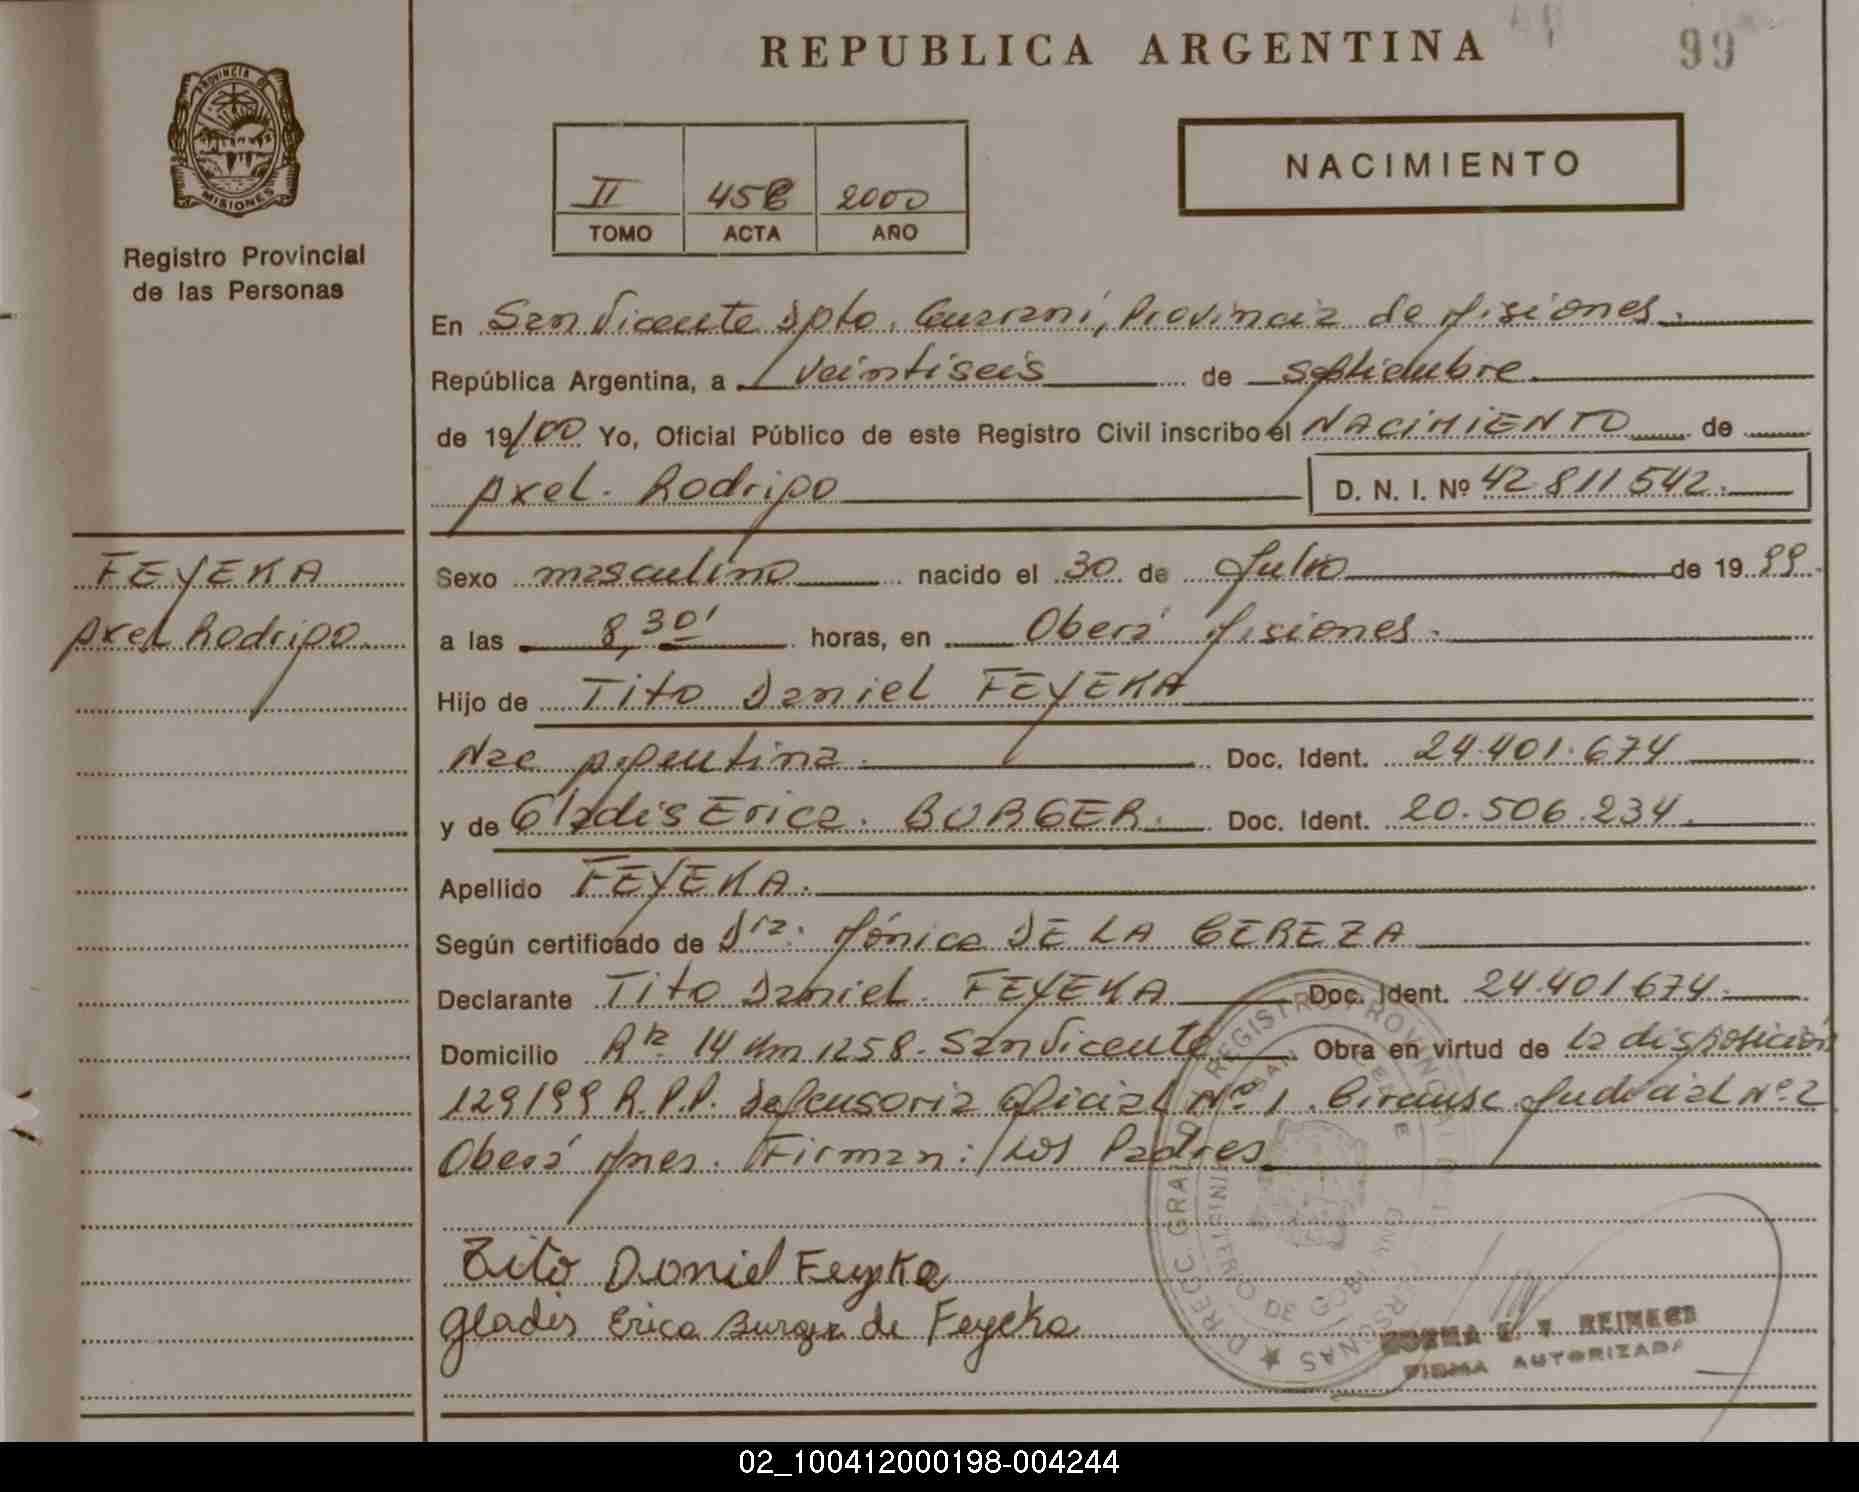 REPUBLICA ARGENTINA
99
PROVINCIA DE
MISIONES
Registro Provincial
de las Personas
NACIMIENTO
II 456 2000
TOMO ACTA AÑO
En San Vicente Dpto. Guaraní, Provincia de Misiones.
República Argentina, a veintiseis de septiembre
de 19/00 Yo, Oficial Público de este Registro Civil inscribo el NACIMIENTO de
Axel Rodrigo D. N. I. Nº 42 811 542.
FEYEKA
Axel Rodrigo
Sexo masculino nacido el 30 de Julio de 19 99
a las 8,30' horas, en Oberá Misiones.
Hijo de Tito Daniel FEYEKA
Nac Argentina. Doc. Ident. 24.401.674
y de Gladis Erica. BURGER. Doc. Ident. 20.506.234.
Apellido FEYEKA.
Según certificado de Dra. Mónica DE LA CEREZA
Declarante Tito Daniel FEYEKA Doc. Ident. 24.401.674.
Domicilio Rta. 14 Km 1258. San Vicente Obra en virtud de la disposición
129/99 R.P.P. Defensoria Oficial Nº 1. Circunsc. Judicial Nº 2
Oberá Mnes. Firman: Los Padres
Tito Daniel Feyeka
Gladis Erica Burger de Feyeka
REINECS
FIRMA AUTORIZADA
02_100412000198-004244